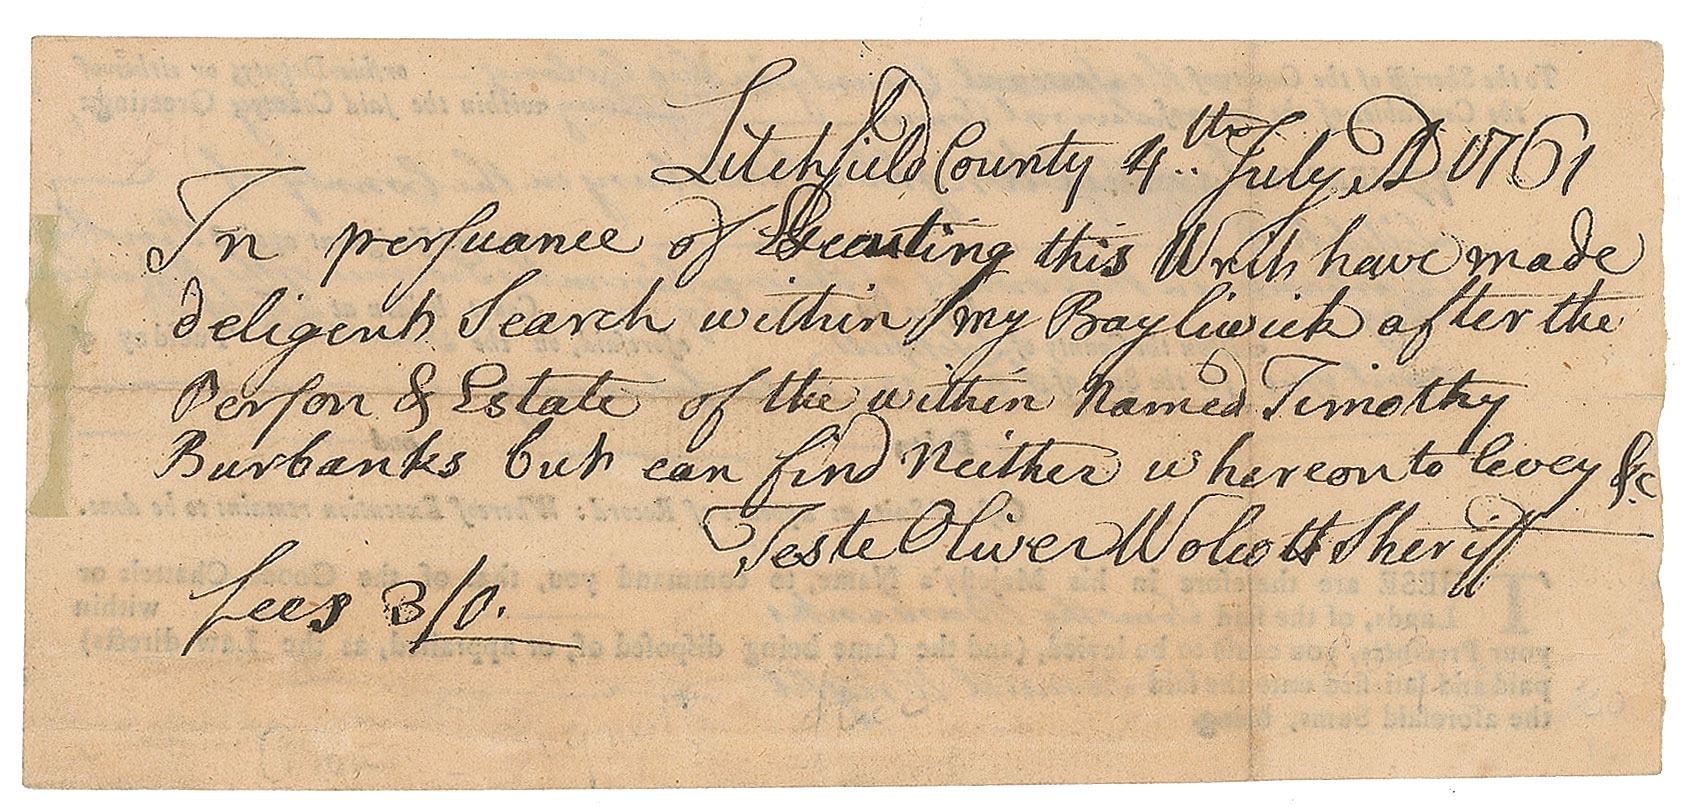 Litchfield County 4..th July AD 1761
In persuance of Executing this Writt have made
deligent Search within my Bayliwick after the
Person & Estate of the within Named Timothy
Burbanks but can find Neither whereon to levey &c
Teste Oliver Wolcott Sheriff
fees 3/0.